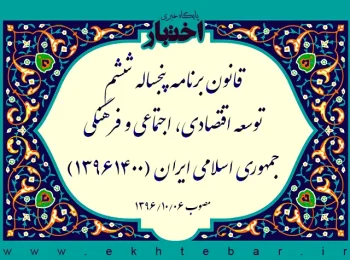 پایگاه خبری
اختبار
قانون برنامه پنجساله ششم
توسعه اقتصادی، اجتماعی و فرهنگی
جمهوری اسلامی ایران (۱۳۹۶۱۴۰۰)
مصوب ۱۳۹۶/۱۰/۰۶
www.ekhtebar.ir